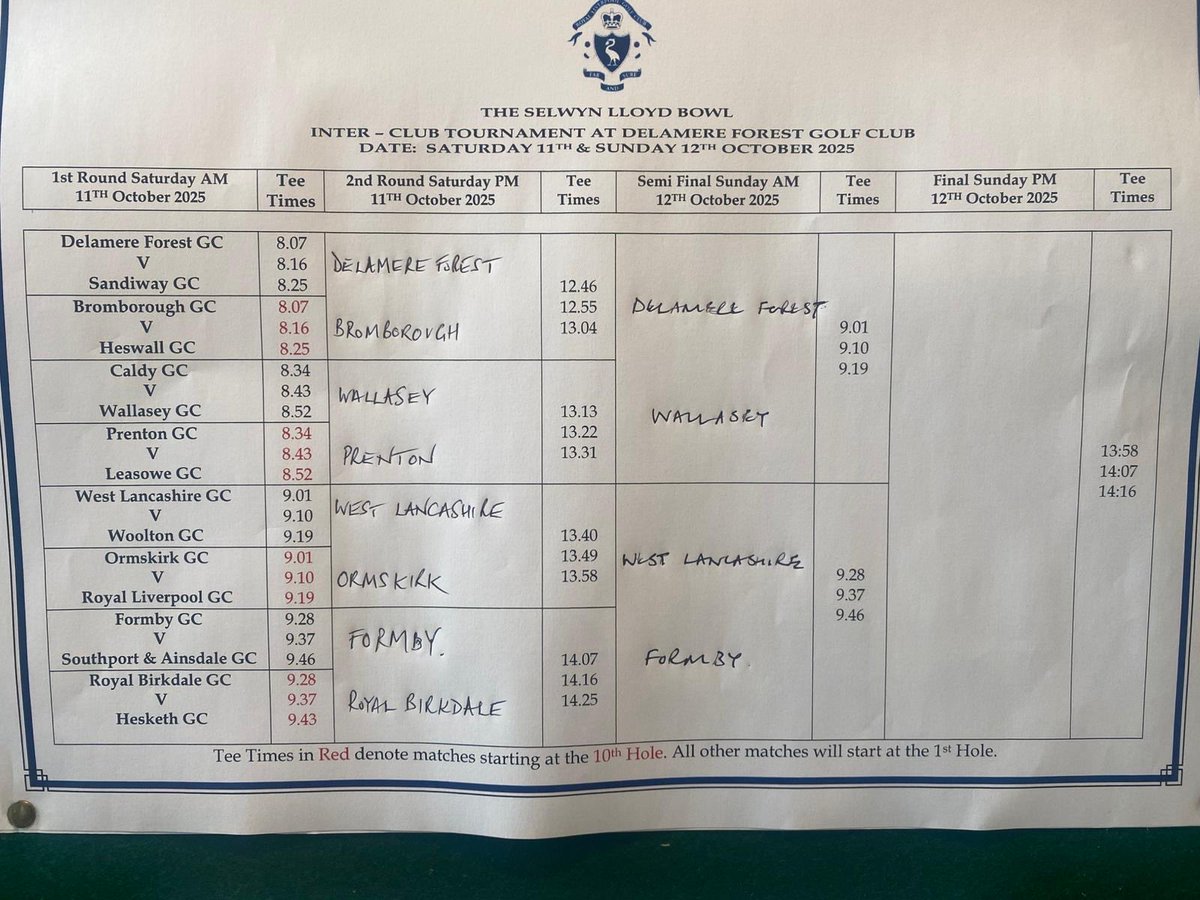 ROYAL LIVERPOOL GOLF CLUB
FAR AND SURE
THE SELWYN LLOYD BOWL
INTER – CLUB TOURNAMENT AT DELAMERE FOREST GOLF CLUB
DATE: SATURDAY 11TH & SUNDAY 12TH OCTOBER 2025
1st Round Saturday AM
11TH October 2025
Tee
Times
2nd Round Saturday PM
11TH October 2025
Tee
Times
Semi Final Sunday AM
12TH October 2025
Tee
Times
Final Sunday PM
12TH October 2025
Tee
Times
Delamere Forest GC
V
Sandiway GC
8.07
8.16
8.25
Bromborough GC
V
Heswall GC
8.07
8.16
8.25
Caldy GC
V
Wallasey GC
8.34
8.43
8.52
Prenton GC
V
Leasowe GC
8.34
8.43
8.52
West Lancashire GC
V
Woolton GC
9.01
9.10
9.19
Ormskirk GC
V
Royal Liverpool GC
9.01
9.10
9.19
Formby GC
V
Southport & Ainsdale GC
9.28
9.37
9.46
Royal Birkdale GC
V
Hesketh GC
9.28
9.37
9.43
DELAMERE FOREST
BROMBOROUGH
12.46
12.55
13.04
WALLASEY
PRENTON
13.13
13.22
13.31
WEST LANCASHIRE
ORMSKIRK
13.40
13.49
13.58
FORMBY.
ROYAL BIRKDALE
14.07
14.16
14.25
DELAMERE FOREST
WALLASEY
9.01
9.10
9.19
WEST LANCASHIRE
FORMBY.
9.28
9.37
9.46
13:58
14:07
14:16
Tee Times in Red denote matches starting at the 10th Hole. All other matches will start at the 1st Hole.